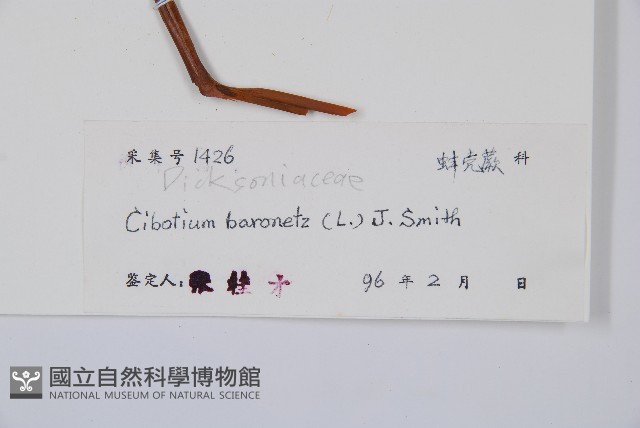 采集号 1426 蚌壳蕨 科
Dicksoniaceae
Cibotium baronetz (L.) J. Smith
鉴定人: 张桂才 96 年 2 月 日
國立自然科學博物館
NATIONAL MUSEUM OF NATURAL SCIENCE